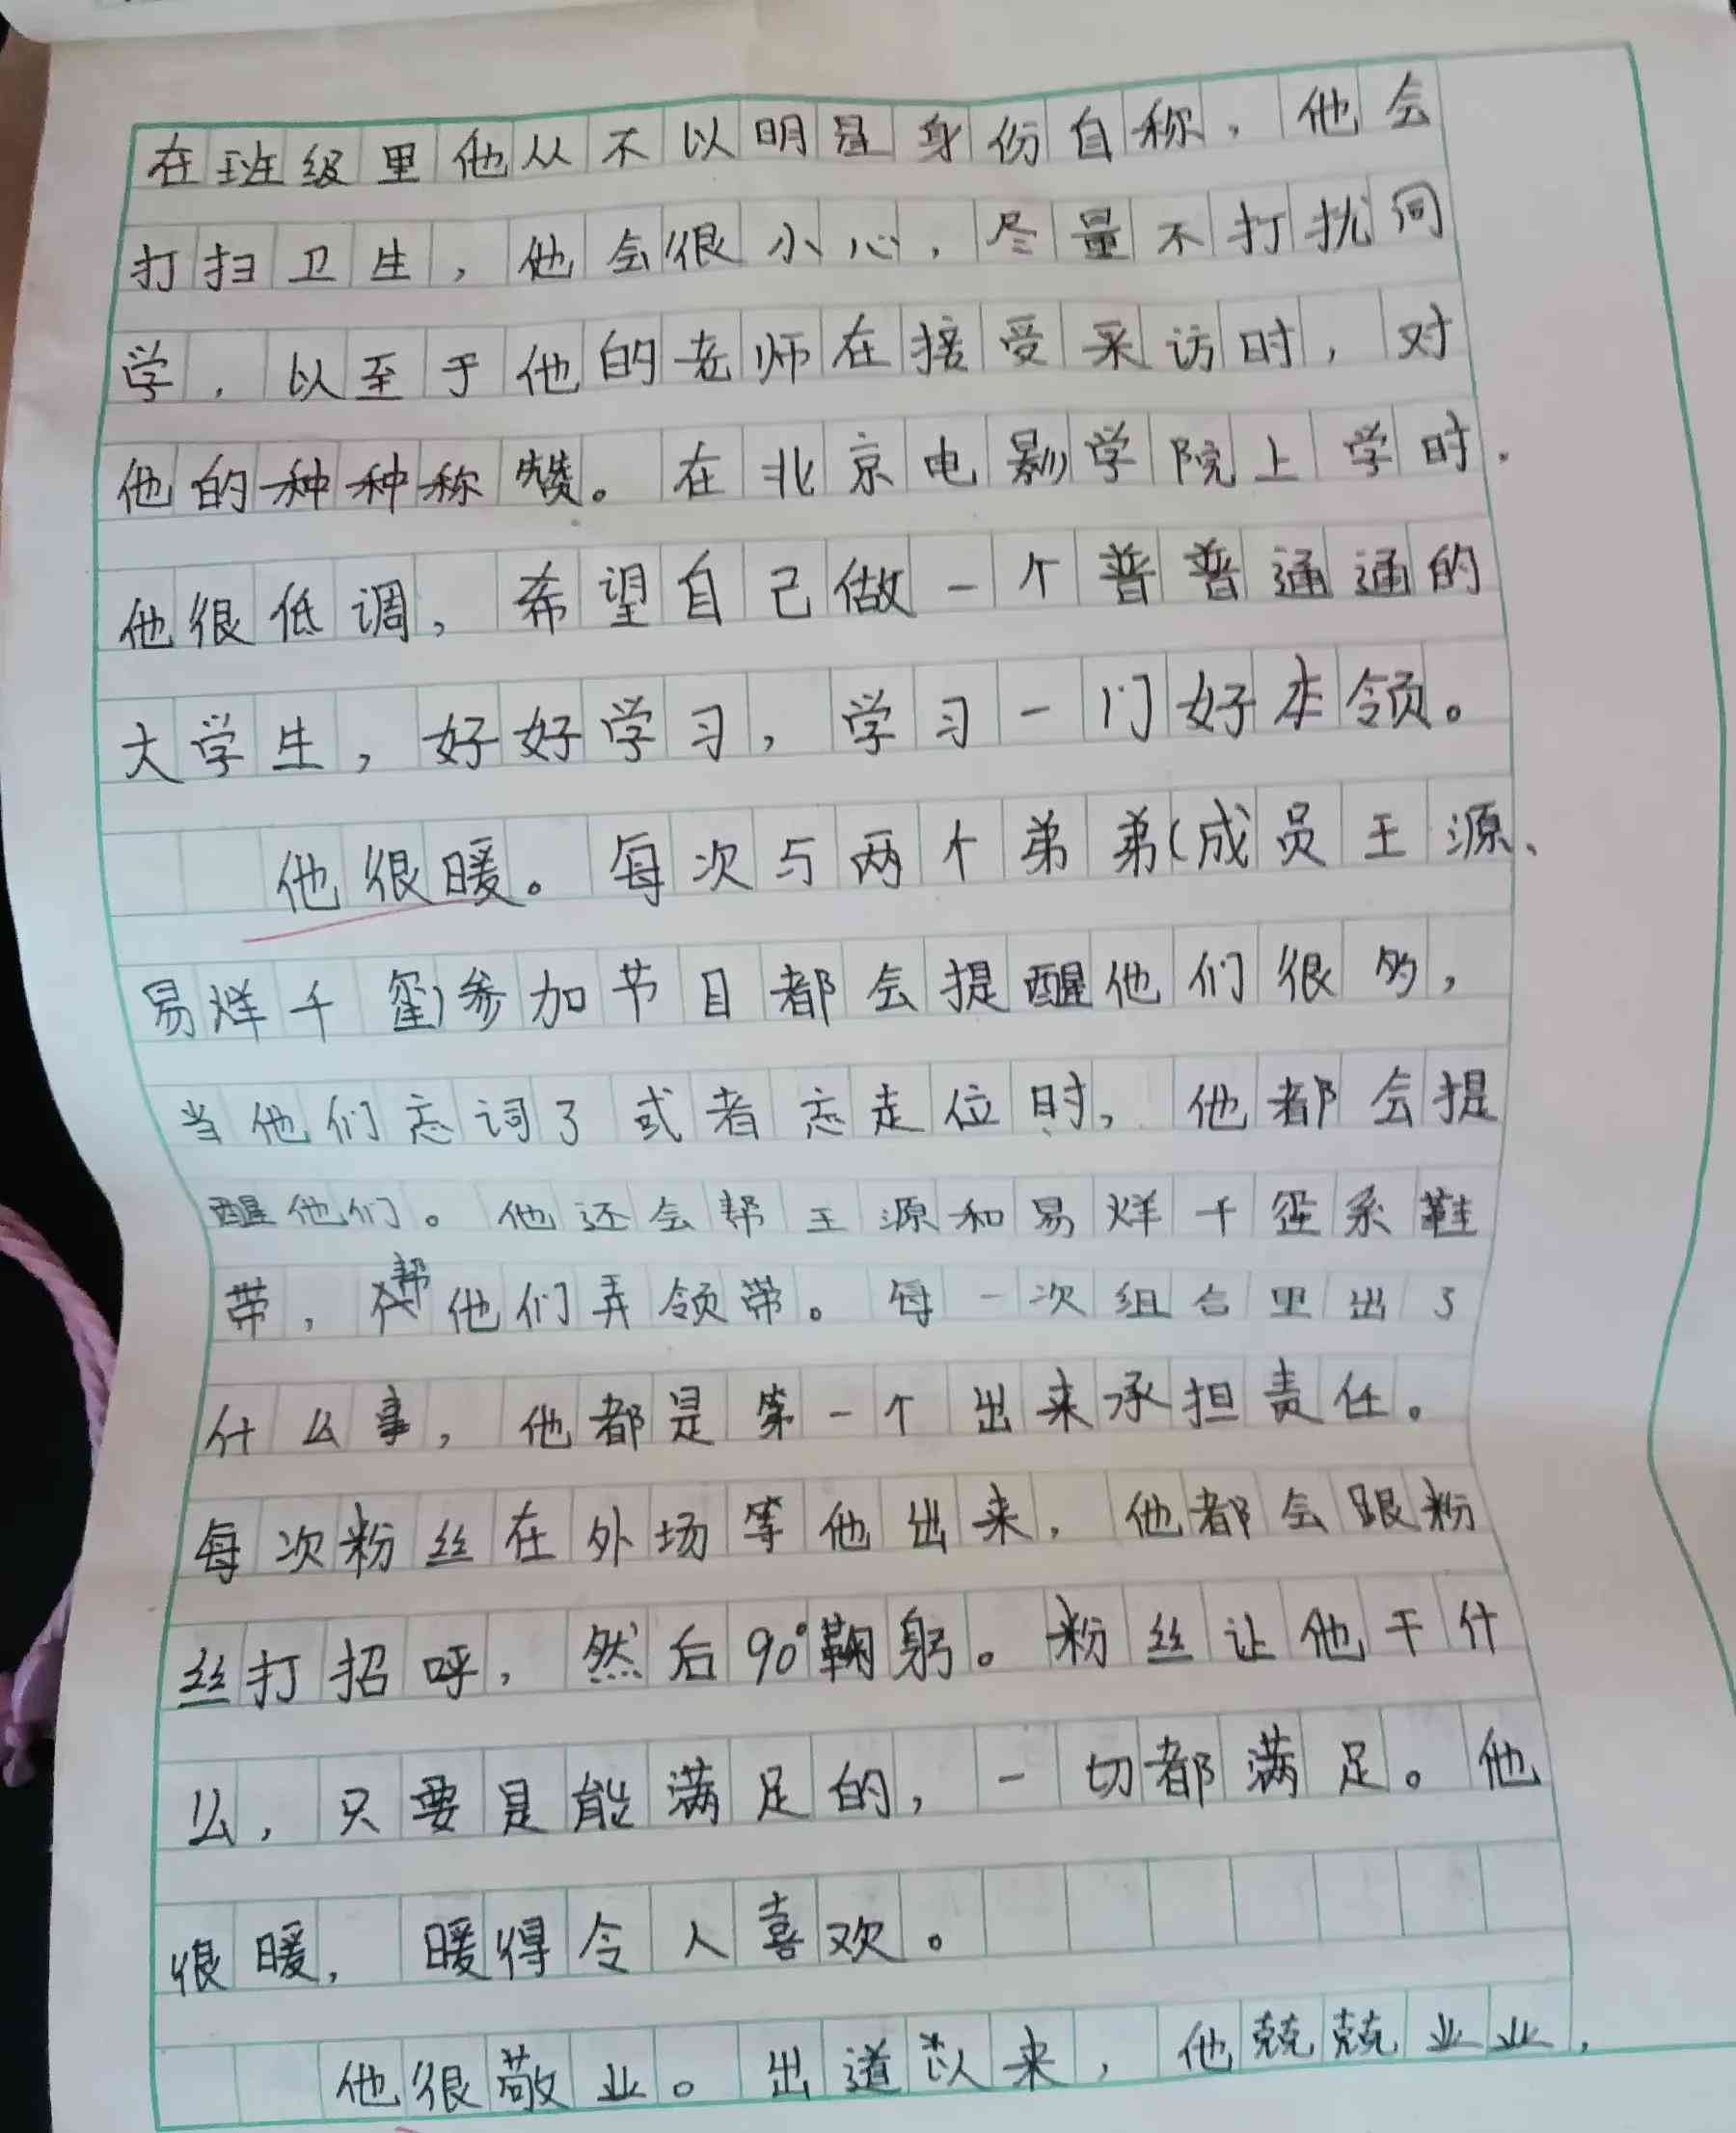 在班级里他从不以明星身份自称，他会
打扫卫生，他会很小心，尽量不打扰同
学，以至于他的老师在接受采访时，对
他的种种称赞。在北京电影学院上学时，
他很低调，希望自己做一个普普通通的
大学生，好好学习，学习一门好本领。
他很暖。每次与两个弟弟(成员王源、
易烊千玺)参加节目都会提醒他们很多，
当他们忘词了或者忘走位时，他都会提
醒他们。他还会帮王源和易烊千玺系鞋
带，帮他们弄领带。每一次组合里出了
什么事，他都是第一个出来承担责任。
每次粉丝在外场等他出来，他都会跟粉
丝打招呼，然后90°鞠躬。粉丝让他干什
么，只要是能满足的，一切都满足。他
很暖，暖得令人喜欢。
他很敬业。出道以来，他兢兢业业，